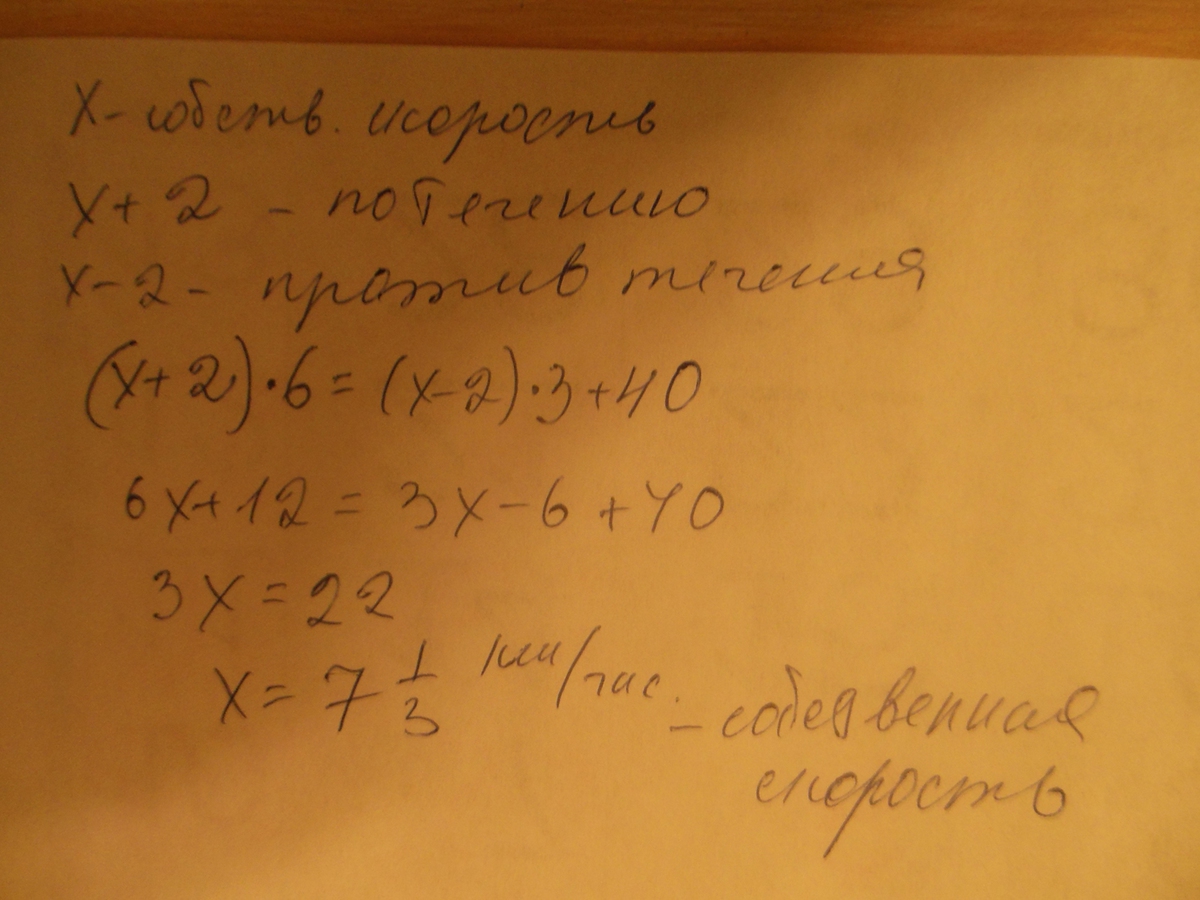 X - собств. скорость
X + 2 - по течению
X - 2 - против течения
(X + 2) · 6 = (X - 2) · 3 + 40
6X + 12 = 3X - 6 + 40
3X = 22
X = 7 1/3 км/час. - собственная
скорость